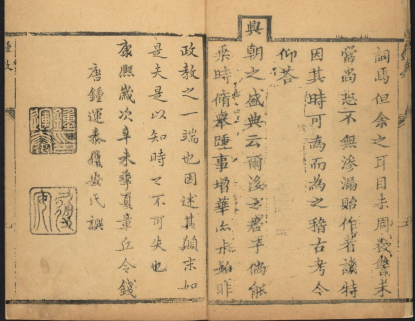 詞焉但余之耳目未周裒輯未
當尚恐不無滲漏貽作者譏特
因其時可為而為之稽古考今
仰答
興朝之盛典云爾後之君子倘能
乘時脩舉踵事增華亦未始非
政教之一端也因述其顛末如
是夫是以知時之不可失也
康熙歲次辛未導夏章丘令錢
唐鍾運泰履安氏譔